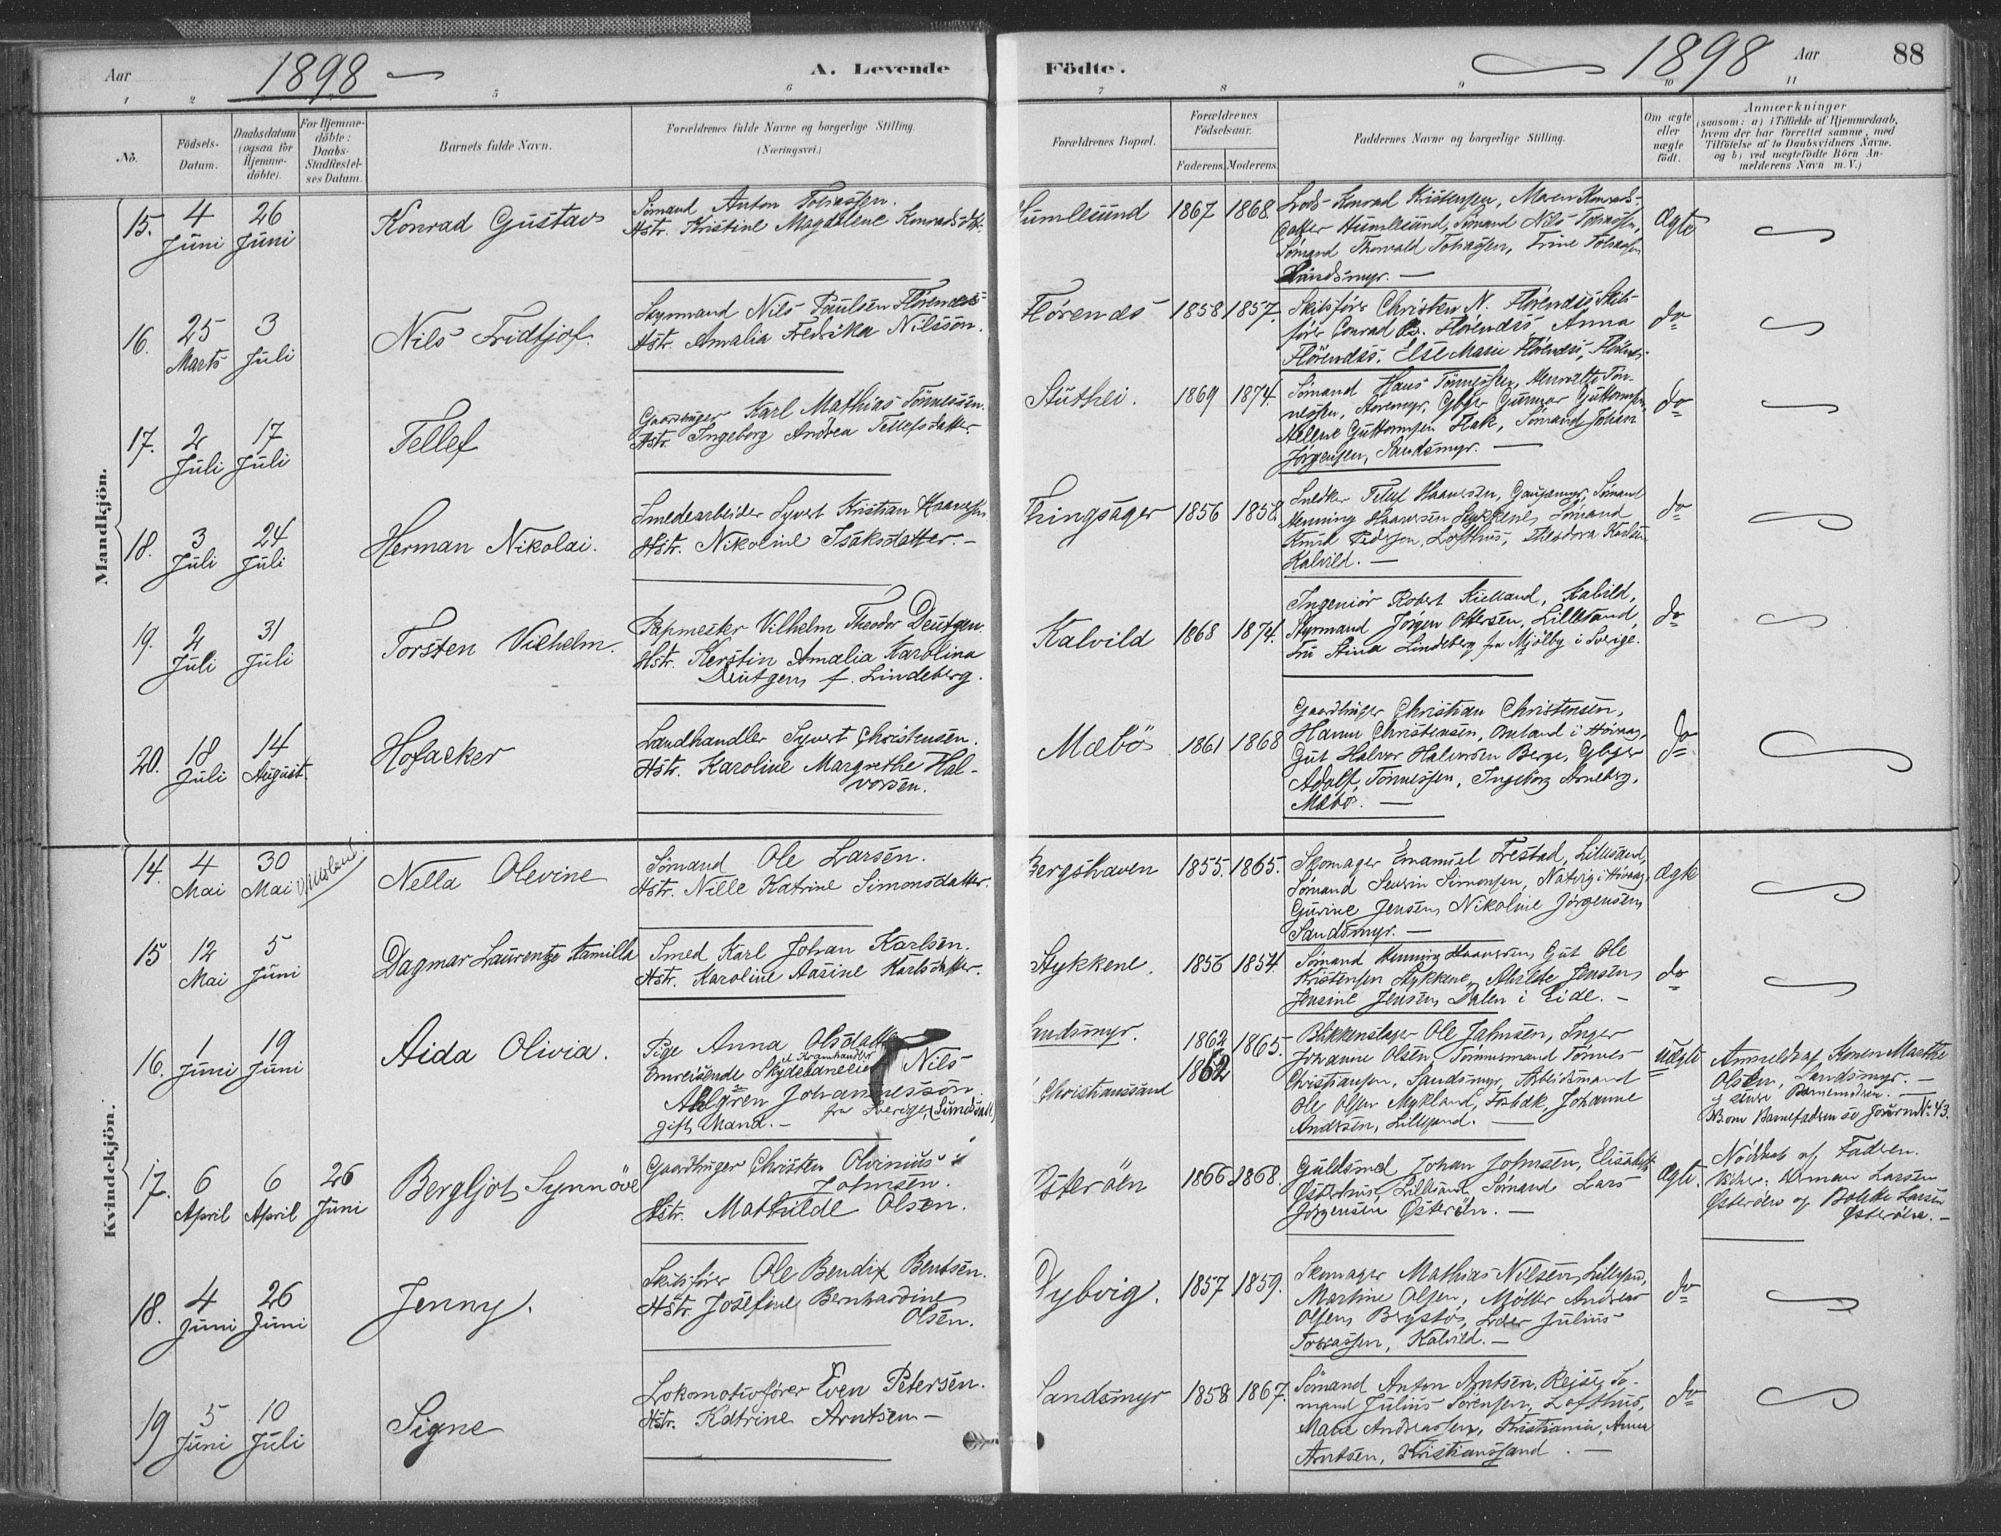 Aar 1898 — A. Levende Födte. 1898 Aar 88
1 2 5 6 7 8 9 10 11
No.
Födsels-Datum.
Daabsdatum (ogsaa for Hjemme-döbte).
For Hjemme-döbte: Daabs-Stadfæstel-ses Datum.
Barnets fulde Navn.
Forældrenes fulde Navne og borgerlige Stilling.
(Næringsvei.)
Forældrenes Bopæl.
Forældrenes Födselsaar.
Faderens. Moderens.
Faddernes Navne og borgerlige Stilling.
Om ægte eller uægte födt.
Anmærkninger
(saasom: a) i Tilfælde af Hjemmedaab,
hvem der har forrettet samme, med
Tilföielse af to Daabsvidners Navne.
og b) ved uægtefödte Börn An-
melderens Navn m. V.)
Mandkjön.
15. 4 Juni 26 Juni Konrad Gustav
Sömand Anton Tobiassen.
Hstr. Kristine Magdalene Konradsdtr.
Humlesund 1867 1868
Lods Konrad Kristensen, Maren Konrads-
datter Humlesund, Sömand Nils Tobiassen,
Sömand Thorvald Tobiassen, Trine Tobiassen
Sandsmyr. —
Ægte
16. 25 Marts 3 Juli Nils Fridtjof.
Styrmand Nils Paulsen Flörendes
Hstr. Amalia Fredrika Nilsson.
Flörendes 1858 1857.
Skibsförer Christen N. Flörendes Skibs-
förer Conrad Flörendes, Anna
Flörendes, Else Marie Flörendes, Flörendes.
do
17. 2 Juli 17 Juli Tellef
Gaardbruger Karl Mathias Tönnessen.
Hstr. Ingeborg Andrea Tellefsdatter.
Stuthei. 1869 1874.
Sömand Hans Tönnessen, Tön-
nessen, Storemyr, Gbger Gunnar Guttormsen,
Helene Guttormsen Flak, Sömand Johan
Jörgensen, Sandsmyr. —
do
18. 3 Juli 24 Juli Herman Nikolai.
Smedearbeider Syvert Kristian Haanessen
Hstr. Nikoline Isaksdatter. —
Thingsager 1856 1858
Snedker Tellef Haanessen, Sömand
Henning Haanessen Stykkene, Sömand
Knud Pedersen, Lofthus, Theodora Karlsen
Kalvild. —
do
19. 2 Juli 31 Juli Torsten Vilhelm.
Papmester Vilhelm Theodor Deutgen.
Hstr. Kerstin Amalia Karolina
Deutgen f. Lindeberg.
Kalvild 1868 1874.
Ingeniör Robert Kielland, Kalvild,
Styrmand Jörgen Ottersen, Lillesand,
Fru Stina Lindeberg fra Mjölby i Sverige.
do
20. 18 Juli 14 August. Hofacker
Landhandler Syvert Christensen.
Hstr. Karoline Margrethe Hal-
vorsen.
Mæbö 1861 1868
Gaardbruger Christian Christensen,
Hanne Christensen, Omland i Hövaag,
Gut Halvor Halvorsen Berge, Gbger
Adolf Tönnessen, Ingeborg Arneberg,
Mæbö. —
do
Kvindekjön.
14. 4 Mai 30 Mai Nella Olevine
Sömand Ole Larsen.
Hstr. Nille Katrine Simonsdatter.
Bergshaven 1855. 1865.
Skomager Emanuel Trestad, Lillesand,
Sömand Severin Simonsen, Natvig i Hövaag,
Gurine Jensen, Nikoline Jörgensen,
Sandsmyr. —
Ægte
15 12 Mai 5 Juni Dagmar Laurentze Kamilla
Smed Karl Johan Karlsen.
Hstr. Karoline Aasine Karlsdatter.
Stykkene. 1856 1854.
Sömand Henning Haanessen, Gut Ole
Kristensen Stykkene, Alvilde Jensen,
Jensine Jensen, Dalen i Eide. —
do
16. 1 Juni 19 Juni Aida Olivia.
Pige Anna Olsdatter
Omreisende Nils
Ahlgren Johannesson
fra Sverige,
gift Mand. —
Sandsmyr.
Christianssand
1862 1865.
1862
Blikkenslager Ole Jahnsen, Inger
Johanne Olsen, Tömmermand Tönnes
Christiansen, Sandsmyr, Arbeidsmand
Ole Olsen Mykland, Johanne
Andersen, Lillesand. —
Uægte
Anmeldt af Konen Marthe
Olsen, Sandsmyr. —
og senere Barnemoderen. —
NB om Barnefaderen se Journ No. 43.
17. 6 April 6 April 26 Juni Bergljot Synnöve
Gaardbruger Christen Olvinius
Johnsen.
Hstr. Mathilde Olsen.
Österöen 1866 1868.
Guldsmed Johan Johnsen, Elisabeth
Österhus, Lillesand, Sömand Lars
Jörgensen Österöen. —
Ægte.
Nöddöbt af Faderen.
Vidner: Herman Larsen
Österöen og Bolette Larsen
Österöen. —
18. 4 Juni 26 Juni Jenny.
Skibsförer Ole Bendix Bentsen.
Hstr. Josefine Bernhardine
Olsen.
Dybvig. 1857 1859.
Skomager Mathias Nilsen, Lillesand,
Martine Olsen, Möller Andreas
Olsen, Bergstö, Julius
Tobiassen, Kalvild. —
do
19 5 Juni 10 Juli Signe
Lokomotivförer Even Petersen.
Hstr. Katrine Arntsen —
Sandsmyr 1858 1867.
Sömand Anton Arntsen, Reisö, Sö-
mand Julius Sörensen, Lofthus,
Andreassen, Kristiania, Anna
Arntsen, Kristianssand. —
do